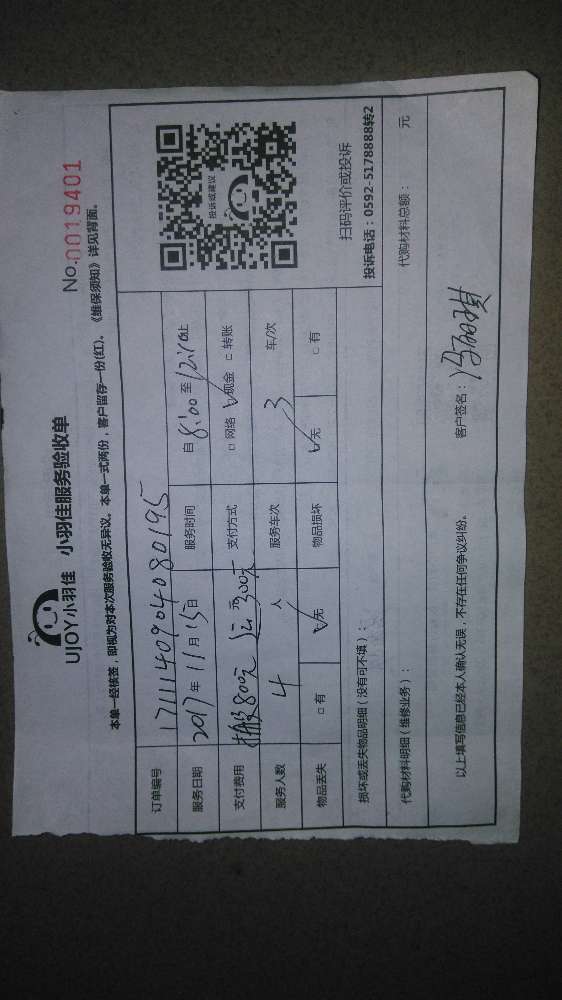 UJOY小羽佳 小羽佳服务验收单
No.0019401
本单一经核签，即视为对本次服务验收无异议。本单一式两份，客户留存一份(红)。《维保须知》详见背面。
订单编号 1711140904080195
服务日期 2017年11月15日 服务时间 自8:00至12:10止
支付费用 800元 300元 支付方式 □网络 ☑现金 □转账
服务人数 4人 服务车次 3 车/次
物品丢失 □有 ☑无 物品损坏 ☑无 □有
投诉或建议
扫码评价或投诉
投诉电话：0592-5178888转2
损坏或丢失物品明细（没有可不填）：
代购材料明细（维修业务）： 代购材料总额： 元
以上填写信息已经本人确认无误，不存在任何争议纠纷。 客户签名：